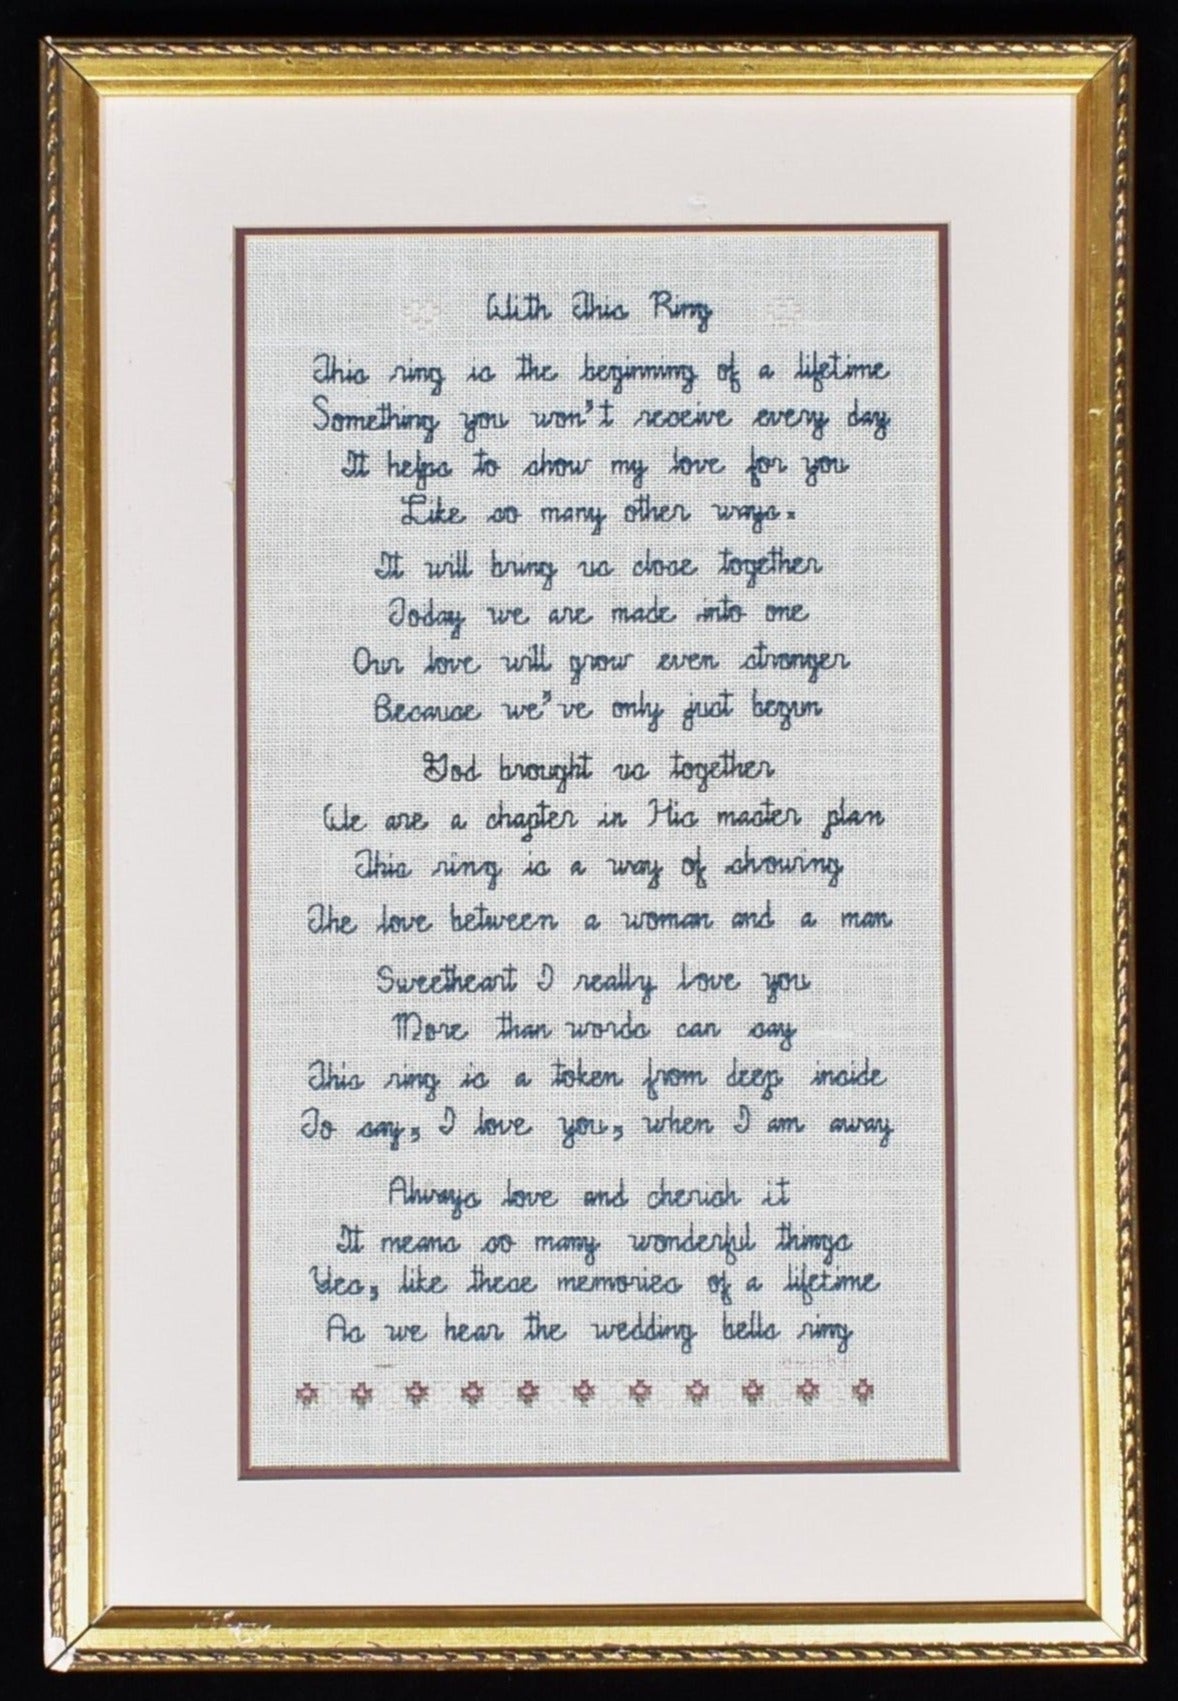 With This Ring
This ring is the beginning of a lifetime
Something you won't receive every day
It helps to show my love for you
Like so many other ways.
It will bring us close together
Today we are made into one
Our love will grow even stronger
Because we've only just begun
God brought us together
We are a chapter in His master plan
This ring is a way of showing
The love between a woman and a man
Sweetheart I really love you
More than words can say
This ring is a token from deep inside
To say, I love you, when I am away
Always love and cherish it
It means so many wonderful things
Yes, like these memories of a lifetime
As we hear the wedding bells ring